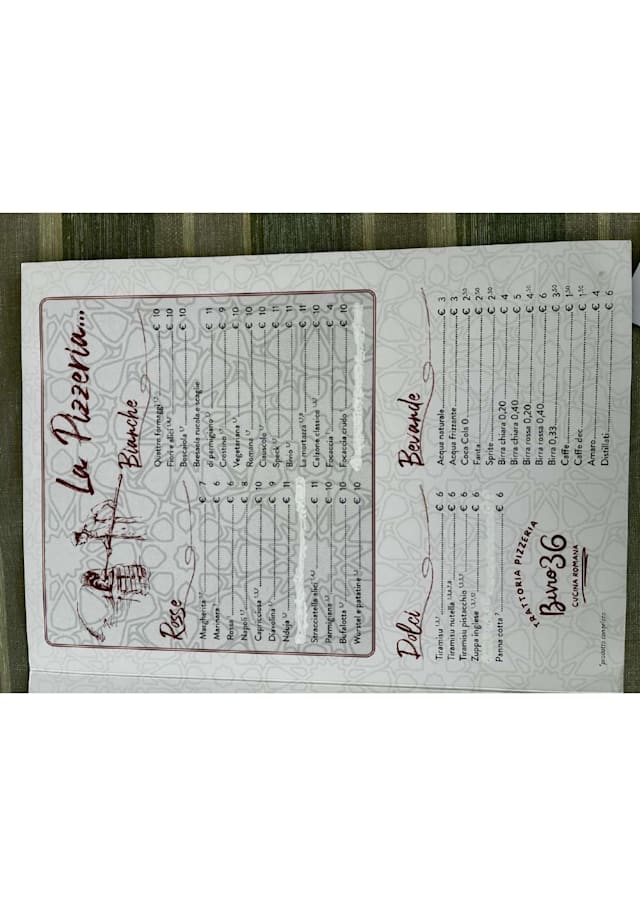 La Pizzeria...
Rosse
Margherita ¹,⁷ € 7
Marinara € 6
Rossa ¹ € 6
Napoli ¹,⁷ € 8
Capricciosa € 10
Diavolina ¹,⁷ € 9
Nduja ¹,⁷ € 11
Stracciatella alici € 11
Parmigiana ¹,⁷ € 10
Bufalotta ¹,⁷ € 10
Wurstel e patatine ¹,⁷ € 10
Bianche
Quattro formaggi ¹,⁷ € 10
Fiori e alici € 10
Boscaiola ¹,⁷ € 10
Bresaola rucola e scaglie
di parmigiano ¹,⁷ € 11
Crostino ¹,⁷ € 9
Vegetariana ¹,⁷ € 10
Romana ¹,⁷ € 10
Ciauscolo ¹,⁷ € 10
Speck ¹,⁷ € 11
Bivio ¹,⁷ € 11
La mortazza € 11
Calzone classico ¹,⁷ € 10
Focaccia ¹ € 4
Focaccia crudo € 10
Dolci
Tiramisu € 6
Tiramisu nutella € 6
Tiramisu pistacchio € 6
Zuppa inglese € 6
Panna cotta ⁷ € 6
Bevande
Acqua naturale € 3
Acqua frizzante € 3
Coca Cola 0 € 2,50
Fanta € 2,50
Sprite € 2,50
Birra chiara 0,20 € 4
Birra chiara 0,40 € 5
Birra rossa 0,20 € 4,50
Birra rossa 0,40 € 6
Birra 0,33 € 3,50
Caffe € 1,50
Caffe dec € 1,50
Amaro € 4
Distillati € 6
TRATTORIA PIZZERIA
Bivio36
CUCINA ROMANA
*prodotto congelato